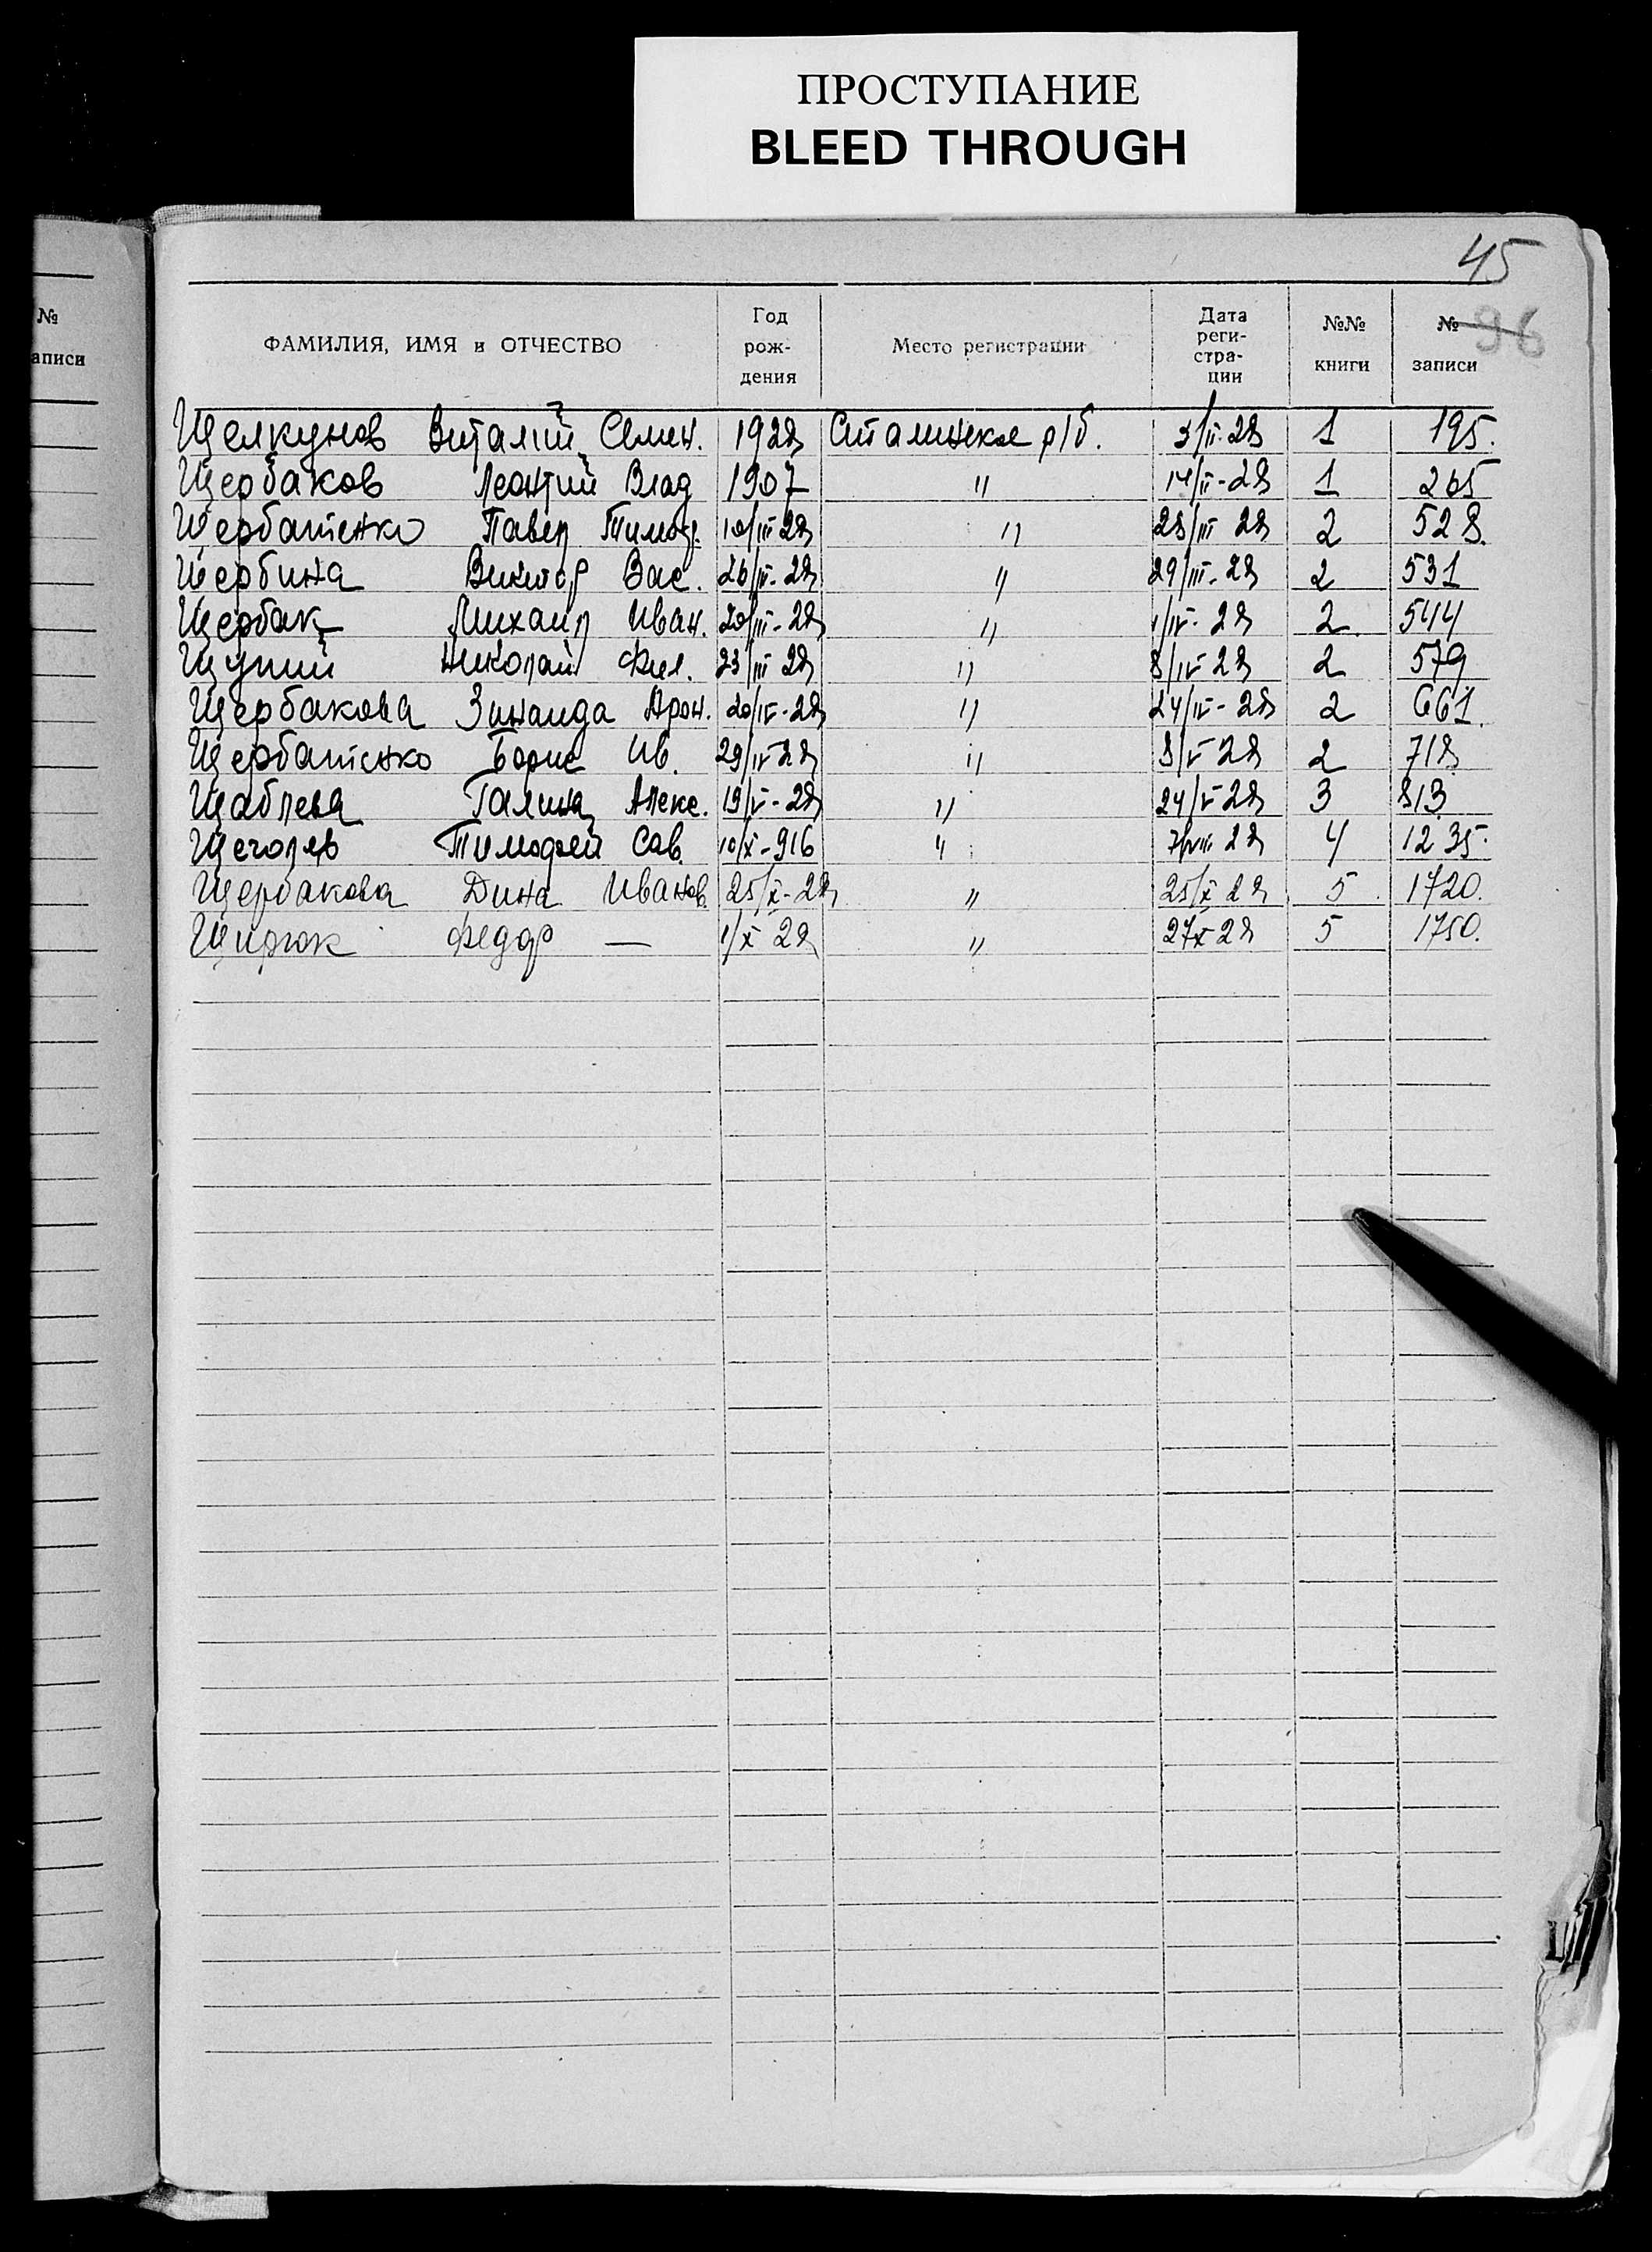 ПРОСТУПАНИЕ
BLEED THROUGH
45
96
№
аписи
ФАМИЛИЯ, ИМЯ и ОТЧЕСТВО Год рож-дения Место регистрации Дата реги-стра-ции №№ книги № записи
Щелкунов Виталий Семен. 1928 Сталинское р/б. 3/II-28 1 195.
Щербаков Леонтий Влад 1907 " 14/II-28 1 265
Щербатенко Павел Тимоф. 10/III 28 " 28/III 28 2 528.
Щербина Виктор Вас. 26/III-28 " 29/III-28 2 531
Щербак Михаил Иван. 20/III-28 " 1/IV-28 2 544
Щупий Николай Фил. 23/III 28 " 8/IV 28 2 579
Щербакова Зинаида Арон. 20/IV-28 " 24/IV-28 2 661.
Щербатенко Борис Ив. 29/IV 28 " 8/V 28 2 718.
Щаблева Галина Алекс. 19/V-28 " 24/V-28 3 813
Щеголев Тимофей Сав. 10/X-916 " 7/VIII 28 4 1235.
Щербакова Дина Иванов. 25/X-28 " 25/X 28 5 1720.
Щирюк Федор — 1/X 28 " 27X 28 5 1750.